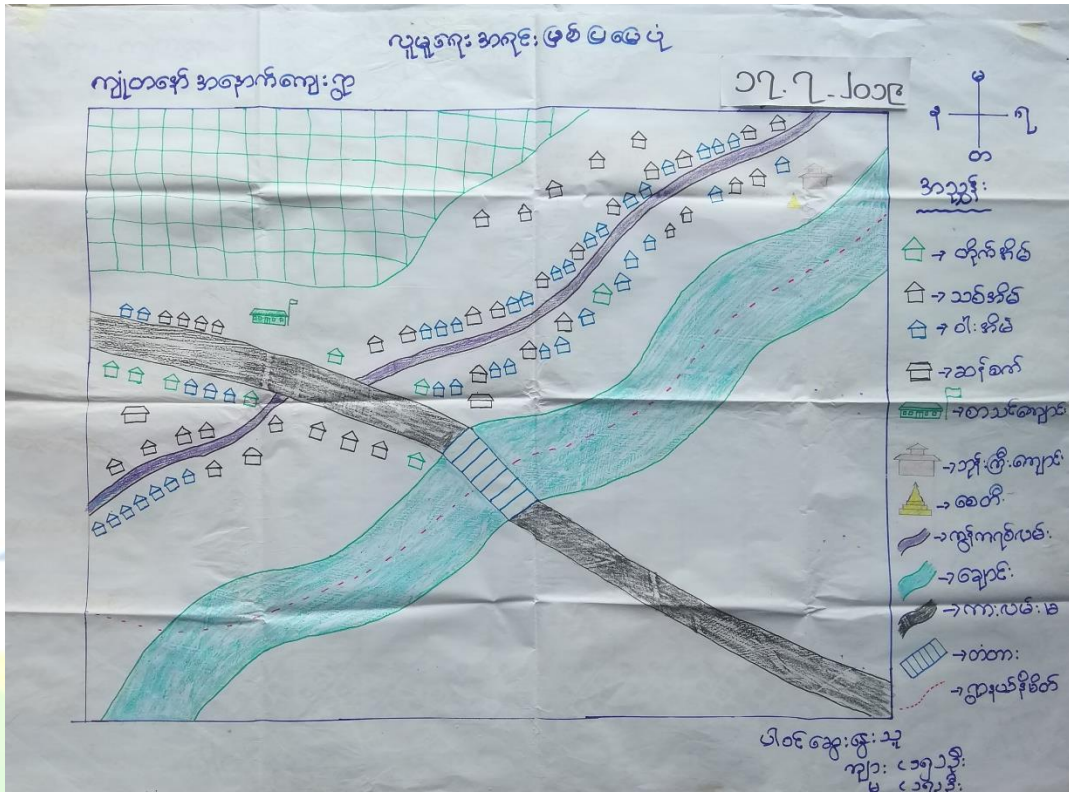 လူမှုရေး အရင်းအမြစ်ပြမြေပုံ
ကျုံတနော် အနောက်ကျေးရွာ
၁၇.၇.၂၀၁၉
မ
န ရ
တ
အညွှန်း
→ တိုက်အိမ်
→ သစ်အိမ်
→ ဝါးအိမ်
→ ဆန်စက်
→ စာသင်ကျောင်း
→ ဘုန်းကြီးကျောင်း
→ စေတီ
→ ကွန်ကရစ်လမ်း
→ ချောင်း
→ ကားလမ်းမ
→ တံတား
→ ရွာနယ်နိမိတ်
ပါဝင်ဆွေးနွေးသူ
ကျား
မ